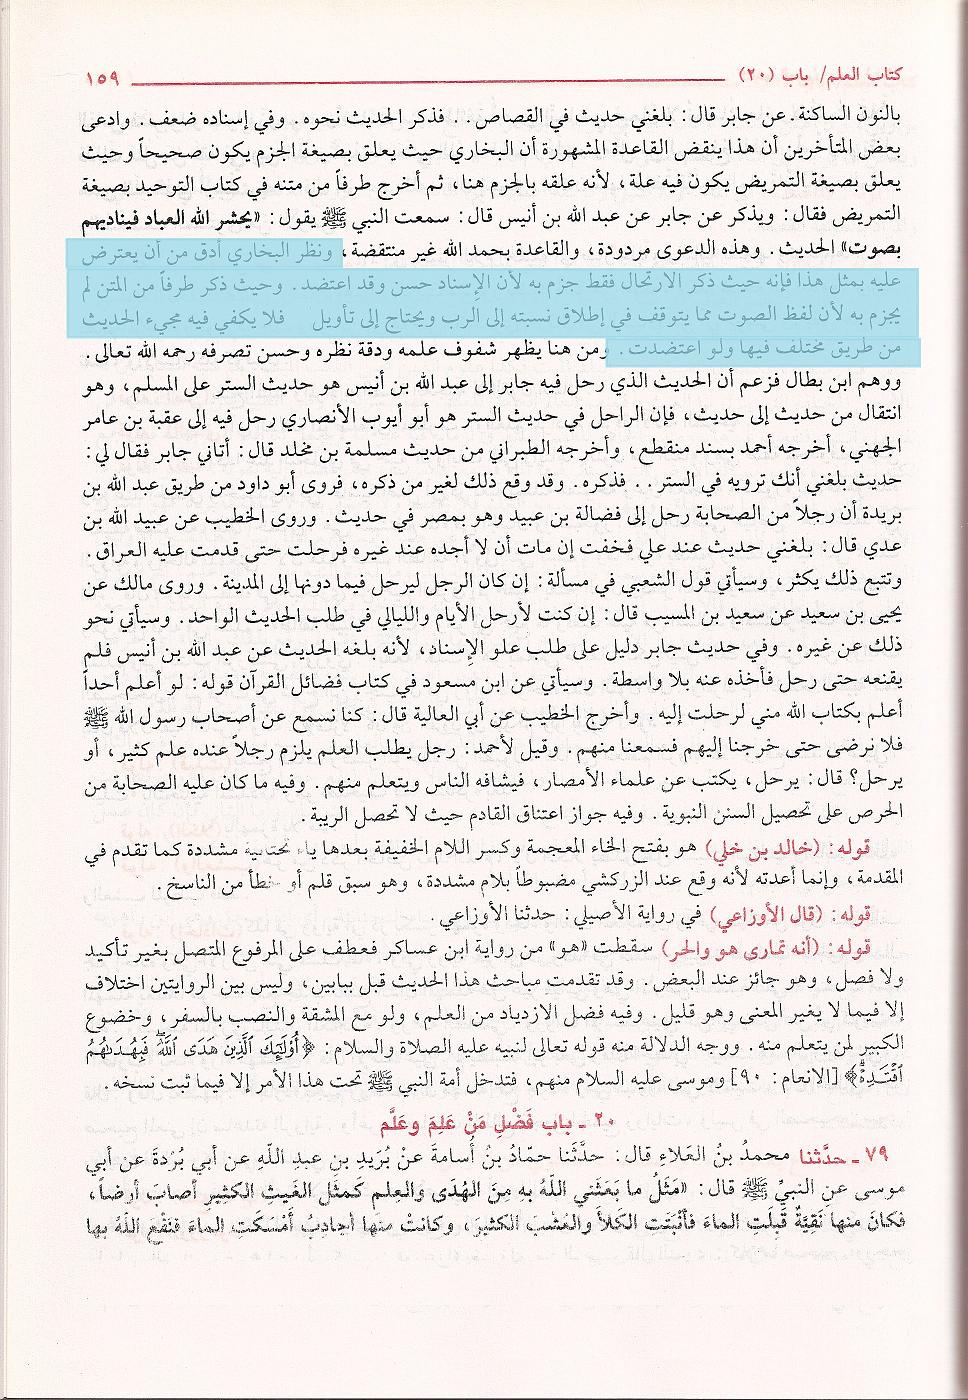 كتاب العلم/ باب (٢٠) ١٥٩
بالنون الساكنة. عن جابر قال: بلغني حديث في القصاص.. فذكر الحديث نحوه. وفي إسناده ضعف. وادعى
بعض المتأخرين أن هذا ينقض القاعدة المشهورة أن البخاري حيث يعلق بصيغة الجزم يكون صحيحاً وحيث
يعلق بصيغة التمريض يكون فيه علة، لأنه علقه بالجزم هنا، ثم أخرج طرفاً من متنه في كتاب التوحيد بصيغة
التمريض فقال: ويذكر عن جابر عن عبد الله بن أنيس قال: سمعت النبي ﷺ يقول: «يحشر الله العباد فيناديهم
بصوت» الحديث. وهذه الدعوى مردودة، والقاعدة بحمد الله غير منتقضة، ونظر البخاري أدق من أن يعترض
عليه بمثل هذا فإنه حيث ذكر الارتحال فقط جزم به لأن الإسناد حسن وقد اعتضد. وحيث ذكر طرفاً من المتن لم
يجزم به لأن لفظ الصوت مما يتوقف في إطلاق نسبته إلى الرب ويحتاج إلى تأويل فلا يكفي فيه مجيء الحديث
من طريق مختلف فيها ولو اعتضدت. ومن هنا يظهر شفوف علمه ودقة نظره وحسن تصرفه رحمه الله تعالى.
ووهم ابن بطال فزعم أن الحديث الذي رحل فيه جابر إلى عبد الله بن أنيس هو حديث الستر على المسلم، وهو
انتقال من حديث إلى حديث، فإن الراحل في حديث الستر هو أبو أيوب الأنصاري رحل فيه إلى عقبة بن عامر
الجهني، أخرجه أحمد بسند منقطع، وأخرجه الطبراني من حديث مسلمة بن مخلد قال: أتاني جابر فقال لي:
حديث بلغني أنك ترويه في الستر.. فذكره. وقد وقع ذلك لغير من ذكره، فروى أبو داود من طريق عبد الله بن
بريدة أن رجلاً من الصحابة رحل إلى فضالة بن عبيد وهو بمصر في حديث. وروى الخطيب عن عبيد الله بن
عدي قال: بلغني حديث عند علي فخفت إن مات أن لا أجده عند غيره فرحلت حتى قدمت عليه العراق.
وتتبع ذلك يكثر، وسيأتي قول الشعبي في مسألة: إن كان الرجل ليرحل فيما دونها إلى المدينة. وروى مالك عن
يحيى بن سعيد عن سعيد بن المسيب قال: إن كنت لأرحل الأيام والليالي في طلب الحديث الواحد. وسيأتي نحو
ذلك عن غيره. وفي حديث جابر دليل على طلب علو الإسناد، لأنه بلغه الحديث عن عبد الله بن أنيس فلم
يقنعه حتى رحل فأخذه عنه بلا واسطة. وسيأتي عن ابن مسعود في كتاب فضائل القرآن قوله: لو أعلم أحداً
أعلم بكتاب الله مني لرحلت إليه. وأخرج الخطيب عن أبي العالية قال: كنا نسمع عن أصحاب رسول الله ﷺ
فلا نرضى حتى خرجنا إليهم فسمعنا منهم. وقيل لأحمد: رجل يطلب العلم يلزم رجلاً عنده علم كثير، أو
يرحل؟ قال: يرحل، يكتب عن علماء الأمصار، فيشافه الناس ويتعلم منهم. وفيه ما كان عليه الصحابة من
الحرص على تحصيل السنن النبوية. وفيه جواز اعتناق القادم حيث لا تحصل الريبة.
قوله: (خالد بن خلي) هو بفتح الخاء المعجمة وكسر اللام الخفيفة بعدها ياء تحتانية مشددة كما تقدم في
المقدمة، وإنما أعدته لأنه وقع عند الزركشي مضبوطاً بلام مشددة، وهو سبق قلم أو خطأ من الناسخ.
قوله: (قال الأوزاعي) في رواية الأصيلي: حدثنا الأوزاعي.
قوله: (أنه تمارى هو والحر) سقطت «هو» من رواية ابن عساكر فعطف على المرفوع المتصل بغير تأكيد
ولا فصل، وهو جائز عند البعض. وقد تقدمت مباحث هذا الحديث قبل ببابين، وليس بين الروايتين اختلاف
إلا فيما لا يغير المعنى وهو قليل. وفيه فضل الازدياد من العلم، ولو مع المشقة والنصب بالسفر، وخضوع
الكبير لمن يتعلم منه. ووجه الدلالة منه قوله تعالى لنبيه عليه الصلاة والسلام: ﴿أُوْلَٰٓئِكَ ٱلَّذِينَ هَدَى ٱللَّهُۖ فَبِهُدَىٰهُمُ
ٱقْتَدِهْۗ﴾ [الانعام: ٩٠] وموسى عليه السلام منهم، فتدخل أمة النبي ﷺ تحت هذا الأمر إلا فيما ثبت نسخه.
٢٠ ـ باب فَضْلِ مَنْ عَلِمَ وعَلَّم
٧٩ ـ حدَّثنا محمدُ بنُ العَلاءِ قال: حدَّثَنا حمّادُ بنُ أُسامةَ عنْ بُرَيدِ بنِ عبدِ اللّهِ عن أبي بُرْدةَ عن أبي
موسى عن النبيِّ ﷺ قال: «مَثَلُ ما بَعَثَني اللّهُ بهِ مِنَ الهُدَى والعِلمِ كَمثَلِ الغَيثِ الكثيرِ أصابَ أرضاً،
فكانَ منها نَقِيَّةٌ قَبِلَتِ الماءَ فأنْبَتَتِ الكَلأَ والعُشبَ الكثيرَ، وكانتْ منها أجادِبُ أمْسَكَتِ الماءَ فنَفَعَ اللّهُ بها